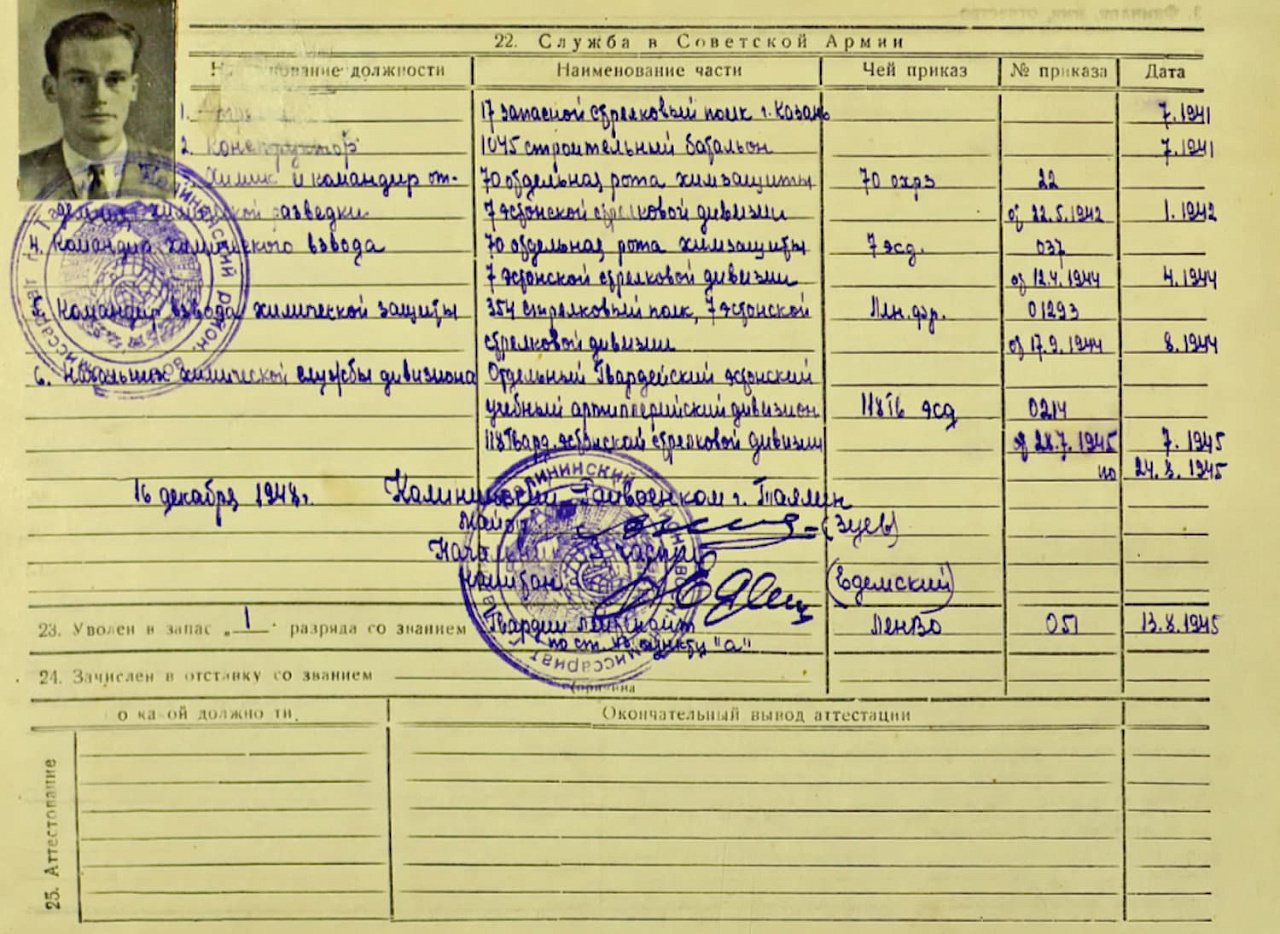 22. Служба в Советской Армии
Наименование должности Наименование части Чей приказ № приказа Дата
1. 17 запасной стрелковый полк г. Казань 7.1941
2. Конструктор 1045 строительный батальон 7.1941
Химик и командир от- 70 отдельная рота химзащиты 70 охрз 22
деления химической разведки 7 эстонской стрелковой дивизии от 22.5.1942 1.1942
4. Командир химического взвода 70 отдельная рота химзащиты 7 эсд. 037
7 эстонской стрелковой дивизии от 12.4.1944 4.1944
5. Командир взвода химической защиты 354 стрелковый полк, 7 эстонской Лен.фр. 01293
стрелковой дивизии от 17.9.1944 8.1944
6. Начальник химической службы дивизиона Отдельный Гвардейский эстонский
учебный артиллерийский дивизион 118 Гв эсд 0214
118 Гвард. эстонской стрелковой дивизии от 28.7.1945 7.1945
по 24.8.1945
16 декабря 1948г. Калининский Райвоенком г. Таллин
Майор (Зуев)
Начальник 3 части
Капитан (Едемский)
23. Уволен в запас „1" разряда со званием Гвардии лейтенант ЛенВО 051 13.8.1945
по ст. пункту "а"
24. Зачислен в отставку со званием
(причина
25. Аттестование
о какой должности Окончательный вывод аттестации